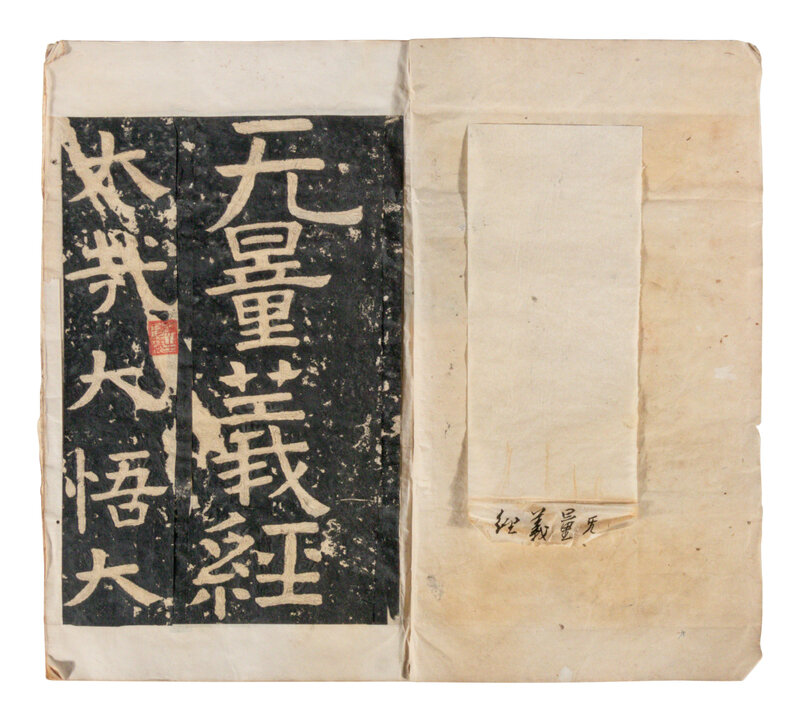 无量義經
无量義經
太哉大悟大